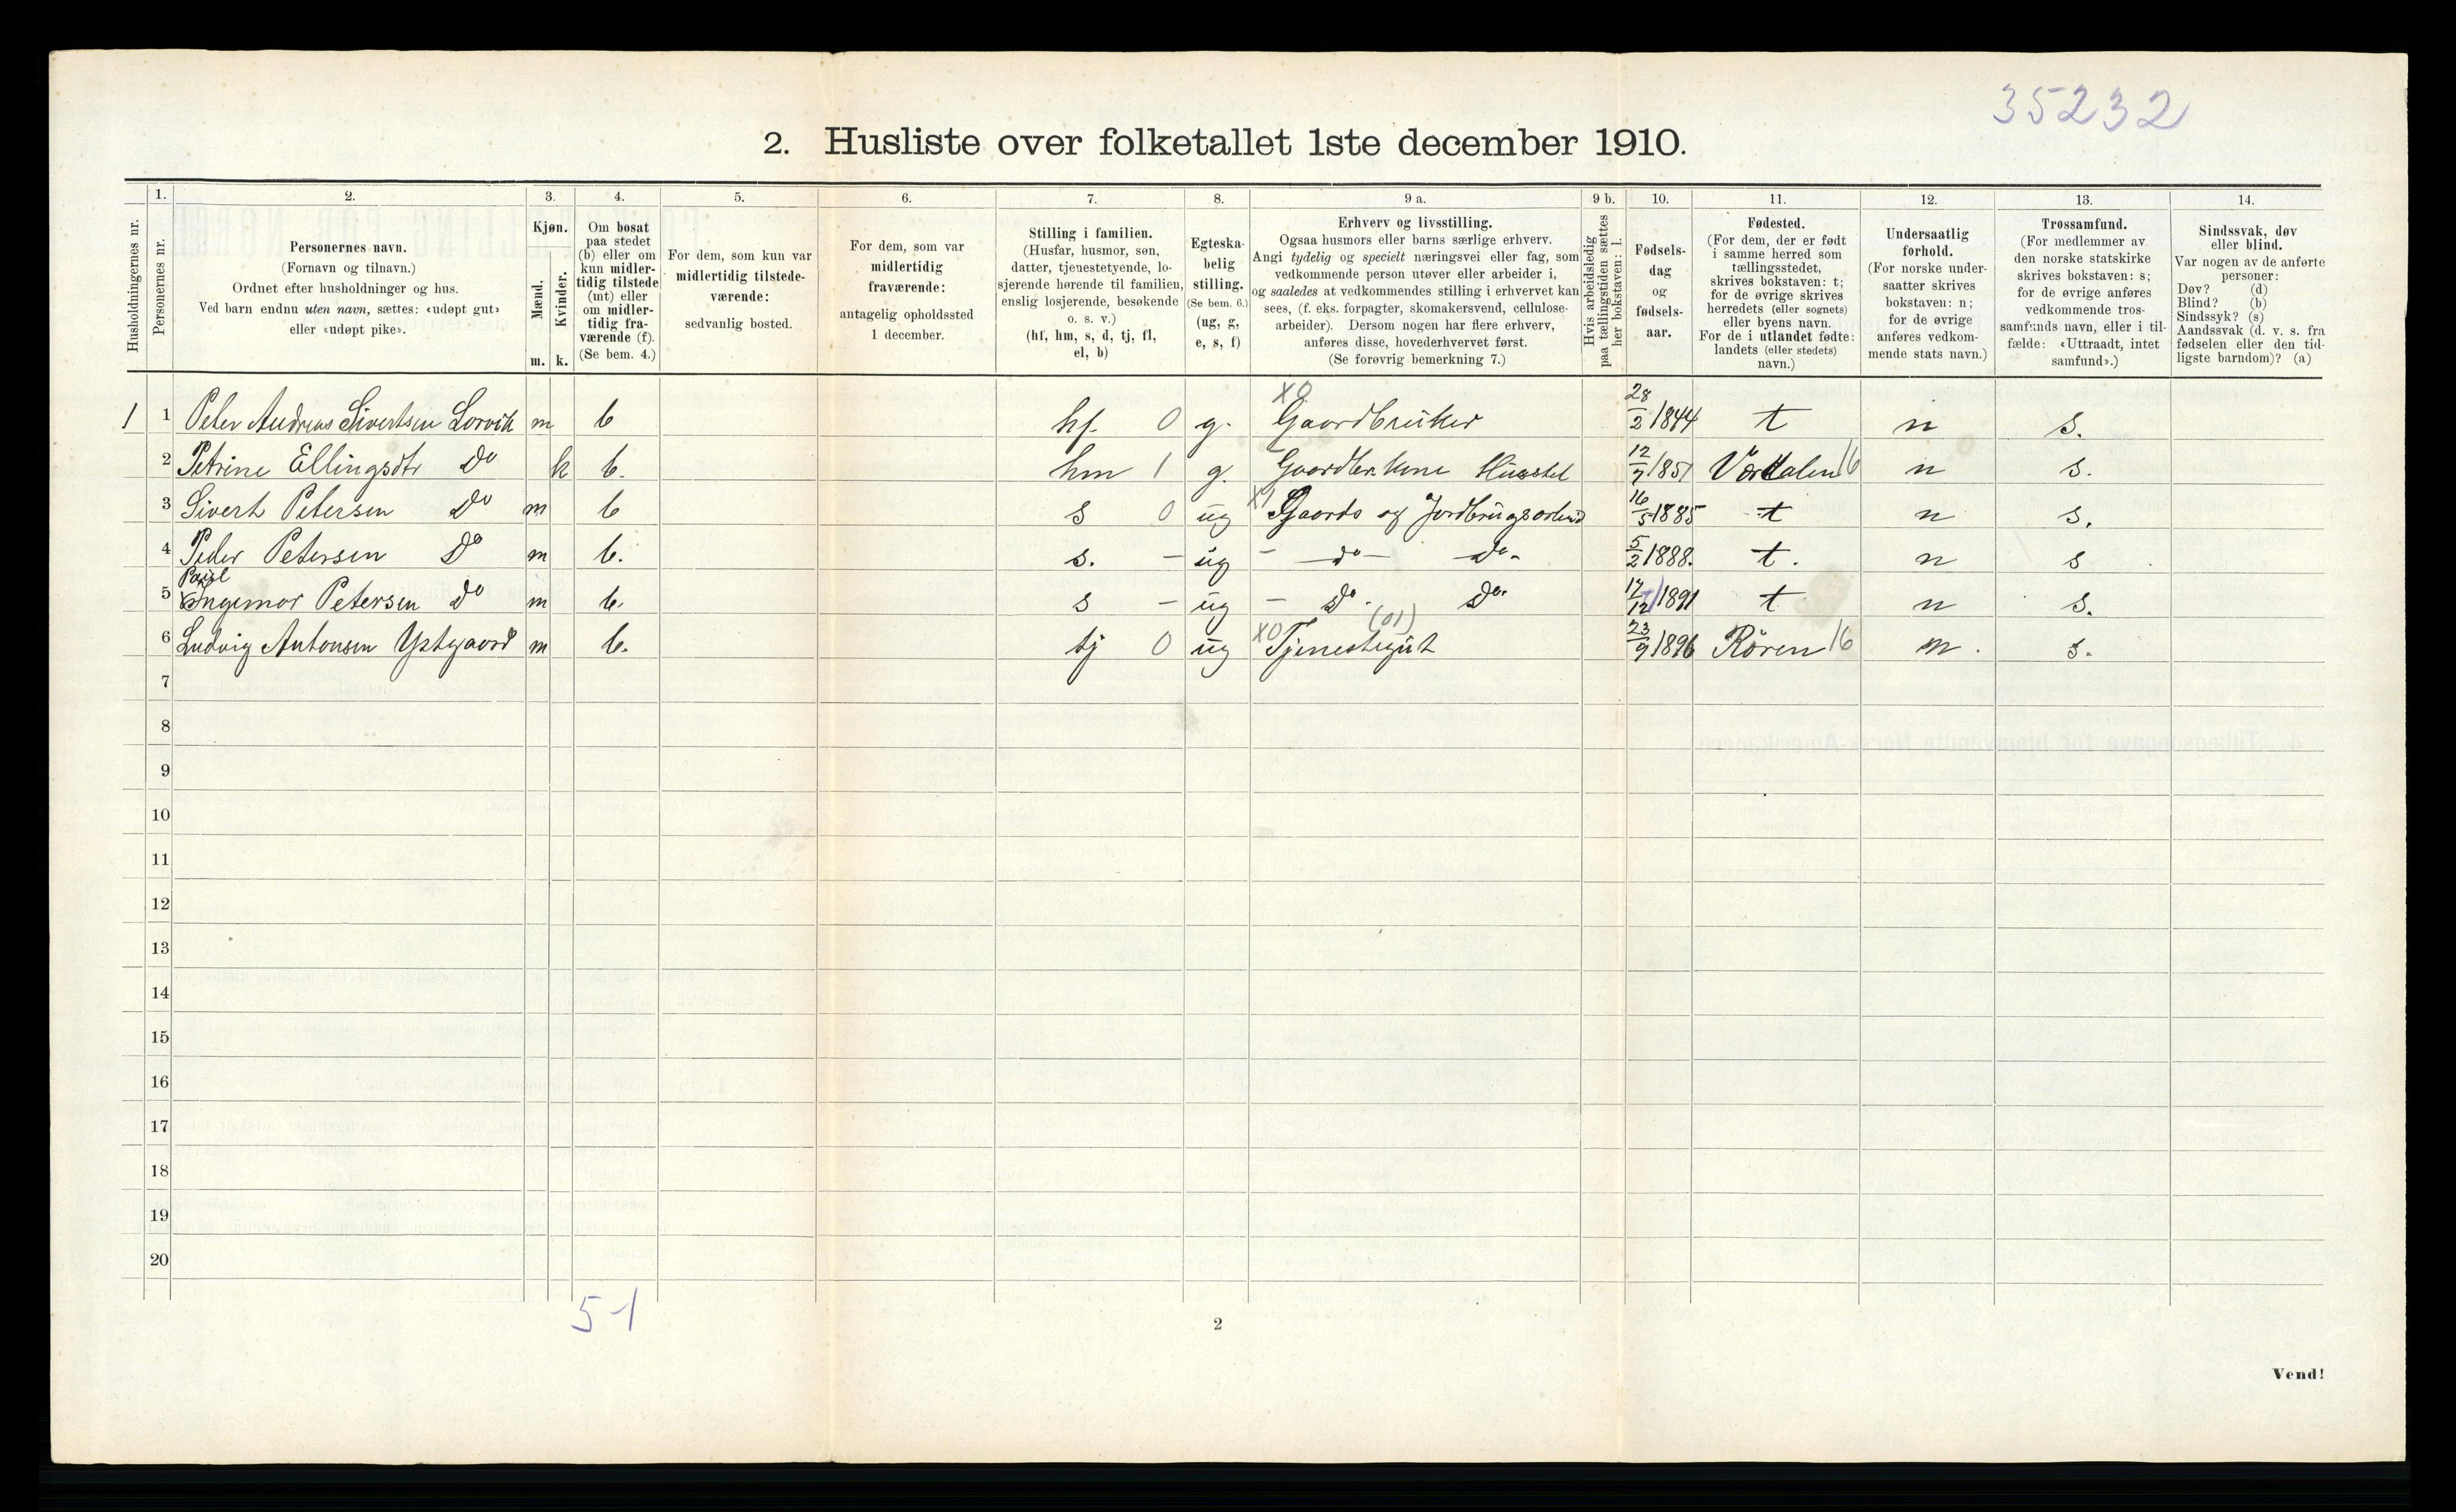 35232
2. Husliste over folketallet 1ste december 1910.
Husholdningernes nr.
1. Personernes nr.
2. Personernes navn. (Fornavn og tilnavn.) Ordnet efter husholdninger og hus. Ved barn endnu uten navn, sættes: «udøpt gut» eller «udøpt pike».
3. Kjøn. Mænd. m. Kvinder. k.
4. Om bosat paa stedet (b) eller om kun midlertidig tilstede (mt) eller om midlertidig fraværende (f). (Se bem. 4.)
5. For dem, som kun var midlertidig tilstedeværende: sedvanlig bosted.
6. For dem, som var midlertidig fraværende: antagelig opholdssted 1 december.
7. Stilling i familien. (Husfar, husmor, søn, datter, tjenestetyende, losjerende hørende til familien, enslig losjerende, besøkende o. s. v.) (hf, hm, s, d, tj, fl, el, b)
8. Egteskabelig stilling. (Se bem. 6.) (ug, g, e, s, f)
9 a. Erhverv og livsstilling. Ogsaa husmors eller barns særlige erhverv. Angi tydelig og specielt næringsvei eller fag, som vedkommende person utøver eller arbeider i, og saaledes at vedkommendes stilling i erhvervet kan sees, (f. eks. forpagter, skomakersvend, cellulosearbeider). Dersom nogen har flere erhverv, anføres disse, hovederhvervet først. (Se forøvrig bemerkning 7.)
9 b. Hvis arbeidsledig paa tællingstiden sættes her bokstaven: l.
10. Fødselsdag og fødselsaar.
11. Fødested. (For dem, der er født i samme herred som tællingsstedet, skrives bokstaven: t; for de øvrige skrives herredets (eller sognets) eller byens navn. For de i utlandet fødte: landets (eller stedets) navn.)
12. Undersaatlig forhold. (For norske undersaatter skrives bokstaven: n; for de øvrige anføres vedkommende stats navn.)
13. Trossamfund. (For medlemmer av den norske statskirke skrives bokstaven: s; for de øvrige anføres vedkommende trossamfunds navn, eller i tilfælde: «Uttraadt, intet samfund».)
14. Sindssvak, døv eller blind. Var nogen av de anførte personer: Døv? (d) Blind? (b) Sindssyk? (s) Aandssvak (d. v. s. fra fødselen eller den tidligste barndom)? (a)
1 1 Peter Andreas Sivertsen Lorvik m b hf. 0 g. X0 Gaardbruker 28/2 1844 t n s.
2 Petrine Ellingsdtr Do k b. hm 1 g. Gaardbr. kone Husstel 12/7 1851 Værdalen 16 n s.
3 Sivert Petersen Do m b s 0 ug X1 Gaards og Jordbrugsarbeid 16/5 1885 t n s.
4 Peder Petersen Do m b. s. - ug - do - do - 5/2 1888. t. n s
5 Paul Ingemar Petersen do m b. s - ug - do. do. 17/12 1891 t n s.
6 Ludvig Antonsen Ystgaard m b. tj 0 ug X0 Tjenestegut (01) 23/9 1896 Røren 16 n. s.
7
8
9
10
11
12
13
14
15
16
17
18
19
20
5-1
2
Vend!